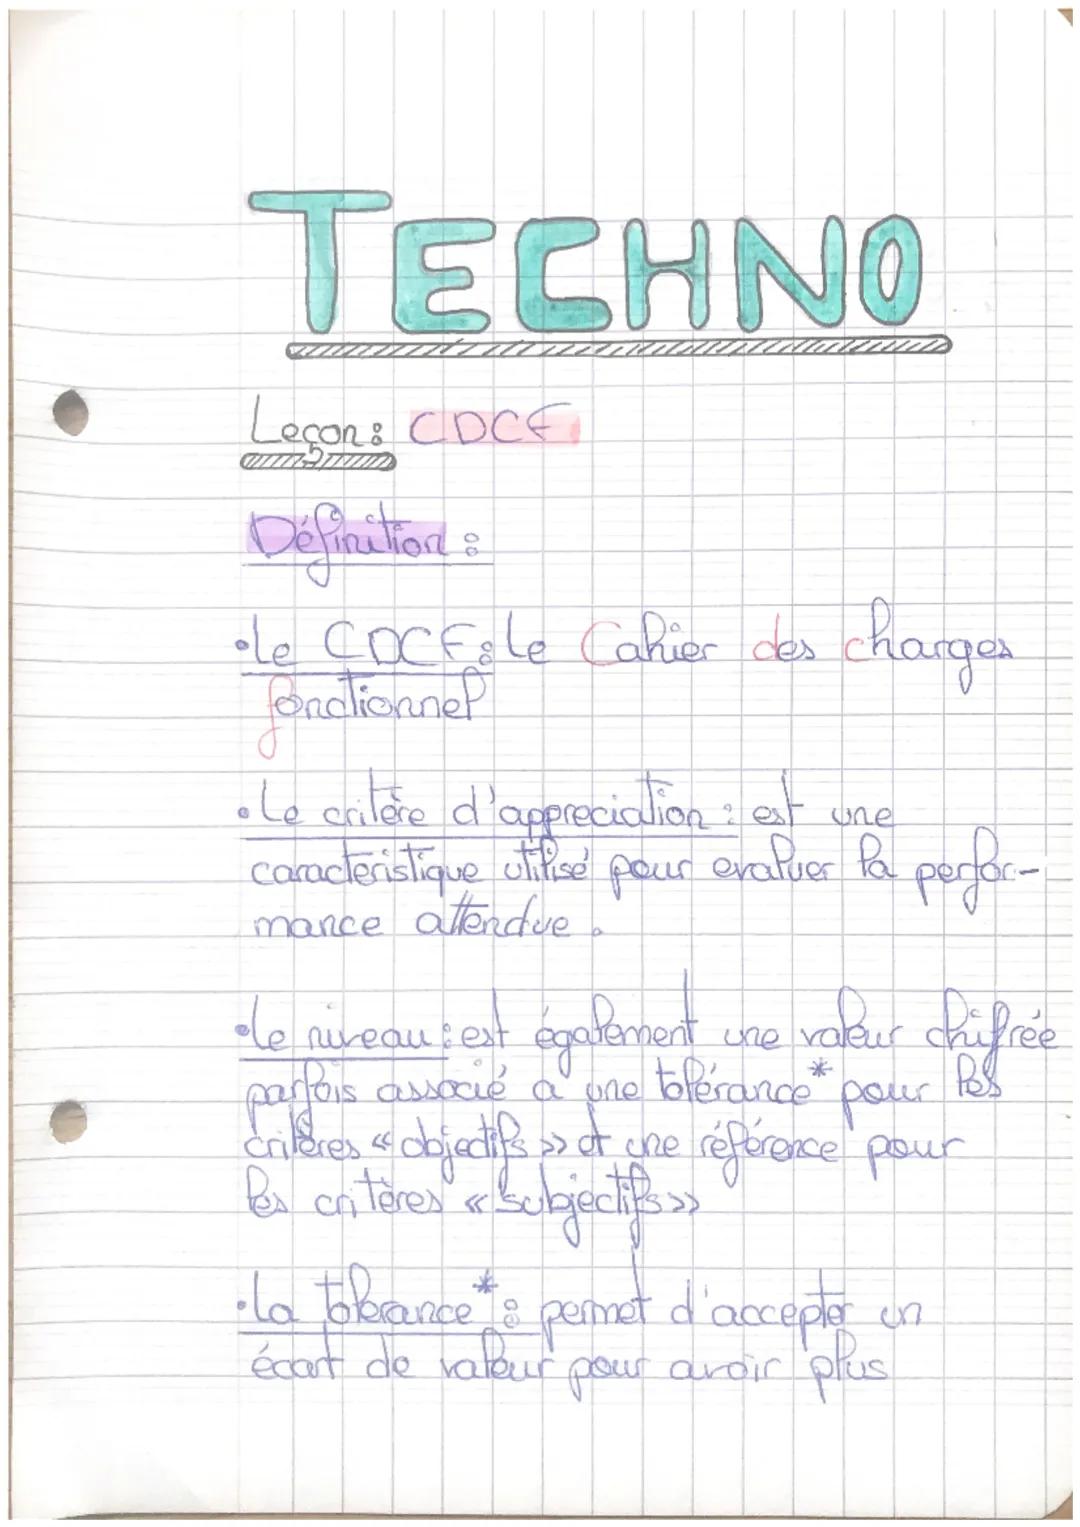 TECHNO
Leçon: CDCF
Définition :
•Le CDCF: Le Cahier des charges
fonctionnel
•Le critère d'appreciation : est une
caractéristique utilisé pour evaluer la perfor-
mance attendue.
•Le niveau : est également une valeur chiffrée
parfois associé a une tolérance* pour les
critères « objectifs » et une référence pour
les critères « subjectifs »
•La tolerance* : permet d'accepter un
écart de valeur pour avoir plus